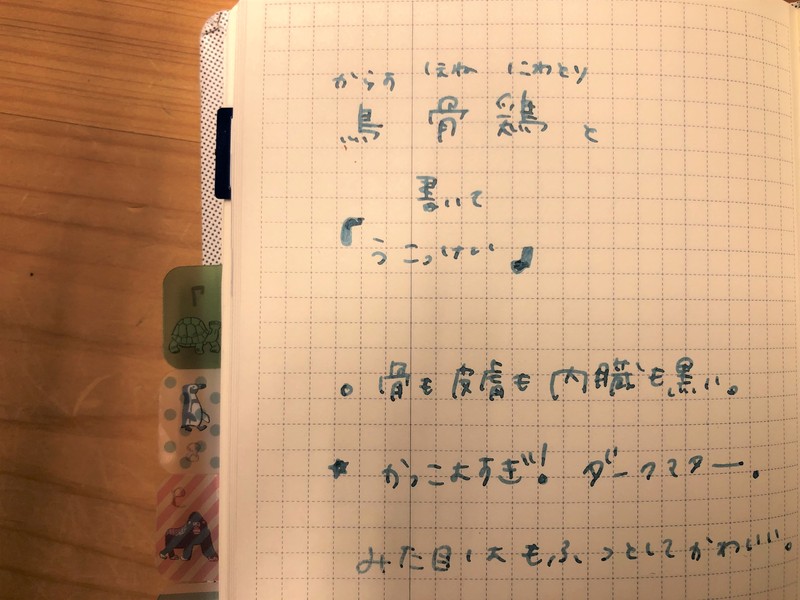 からす ほね にわとり
烏 骨 鶏 と
書いて
『うこっけい』
。骨も皮膚も内臓も黒い。
★ かっこよすぎ! ダークマター。
みた目はもふっとしてかわいい。